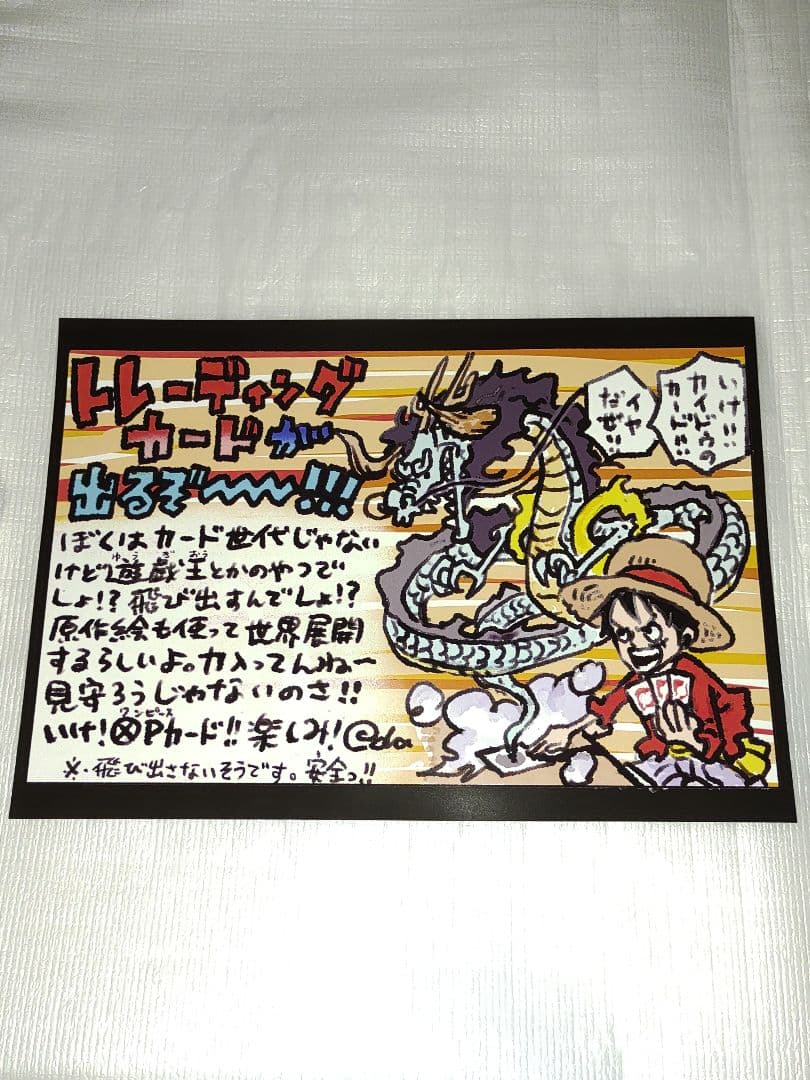 トレーディング
カードが
出るぞ〜〜〜!!!
ぼくはカード世代じゃない
けど遊戯王とかのやつで
しょ!?飛び出すんでしょ!?
原作絵も使って世界展開
するらしいよ。力入ってんね〜
見守ろうじゃないのさ!!
いけ!ⓍPカード!!楽しみ!
※・飛び出さないそうです。安全っ!!
いけ!!
カイドウの
カード!!
イヤ
なぜ!!